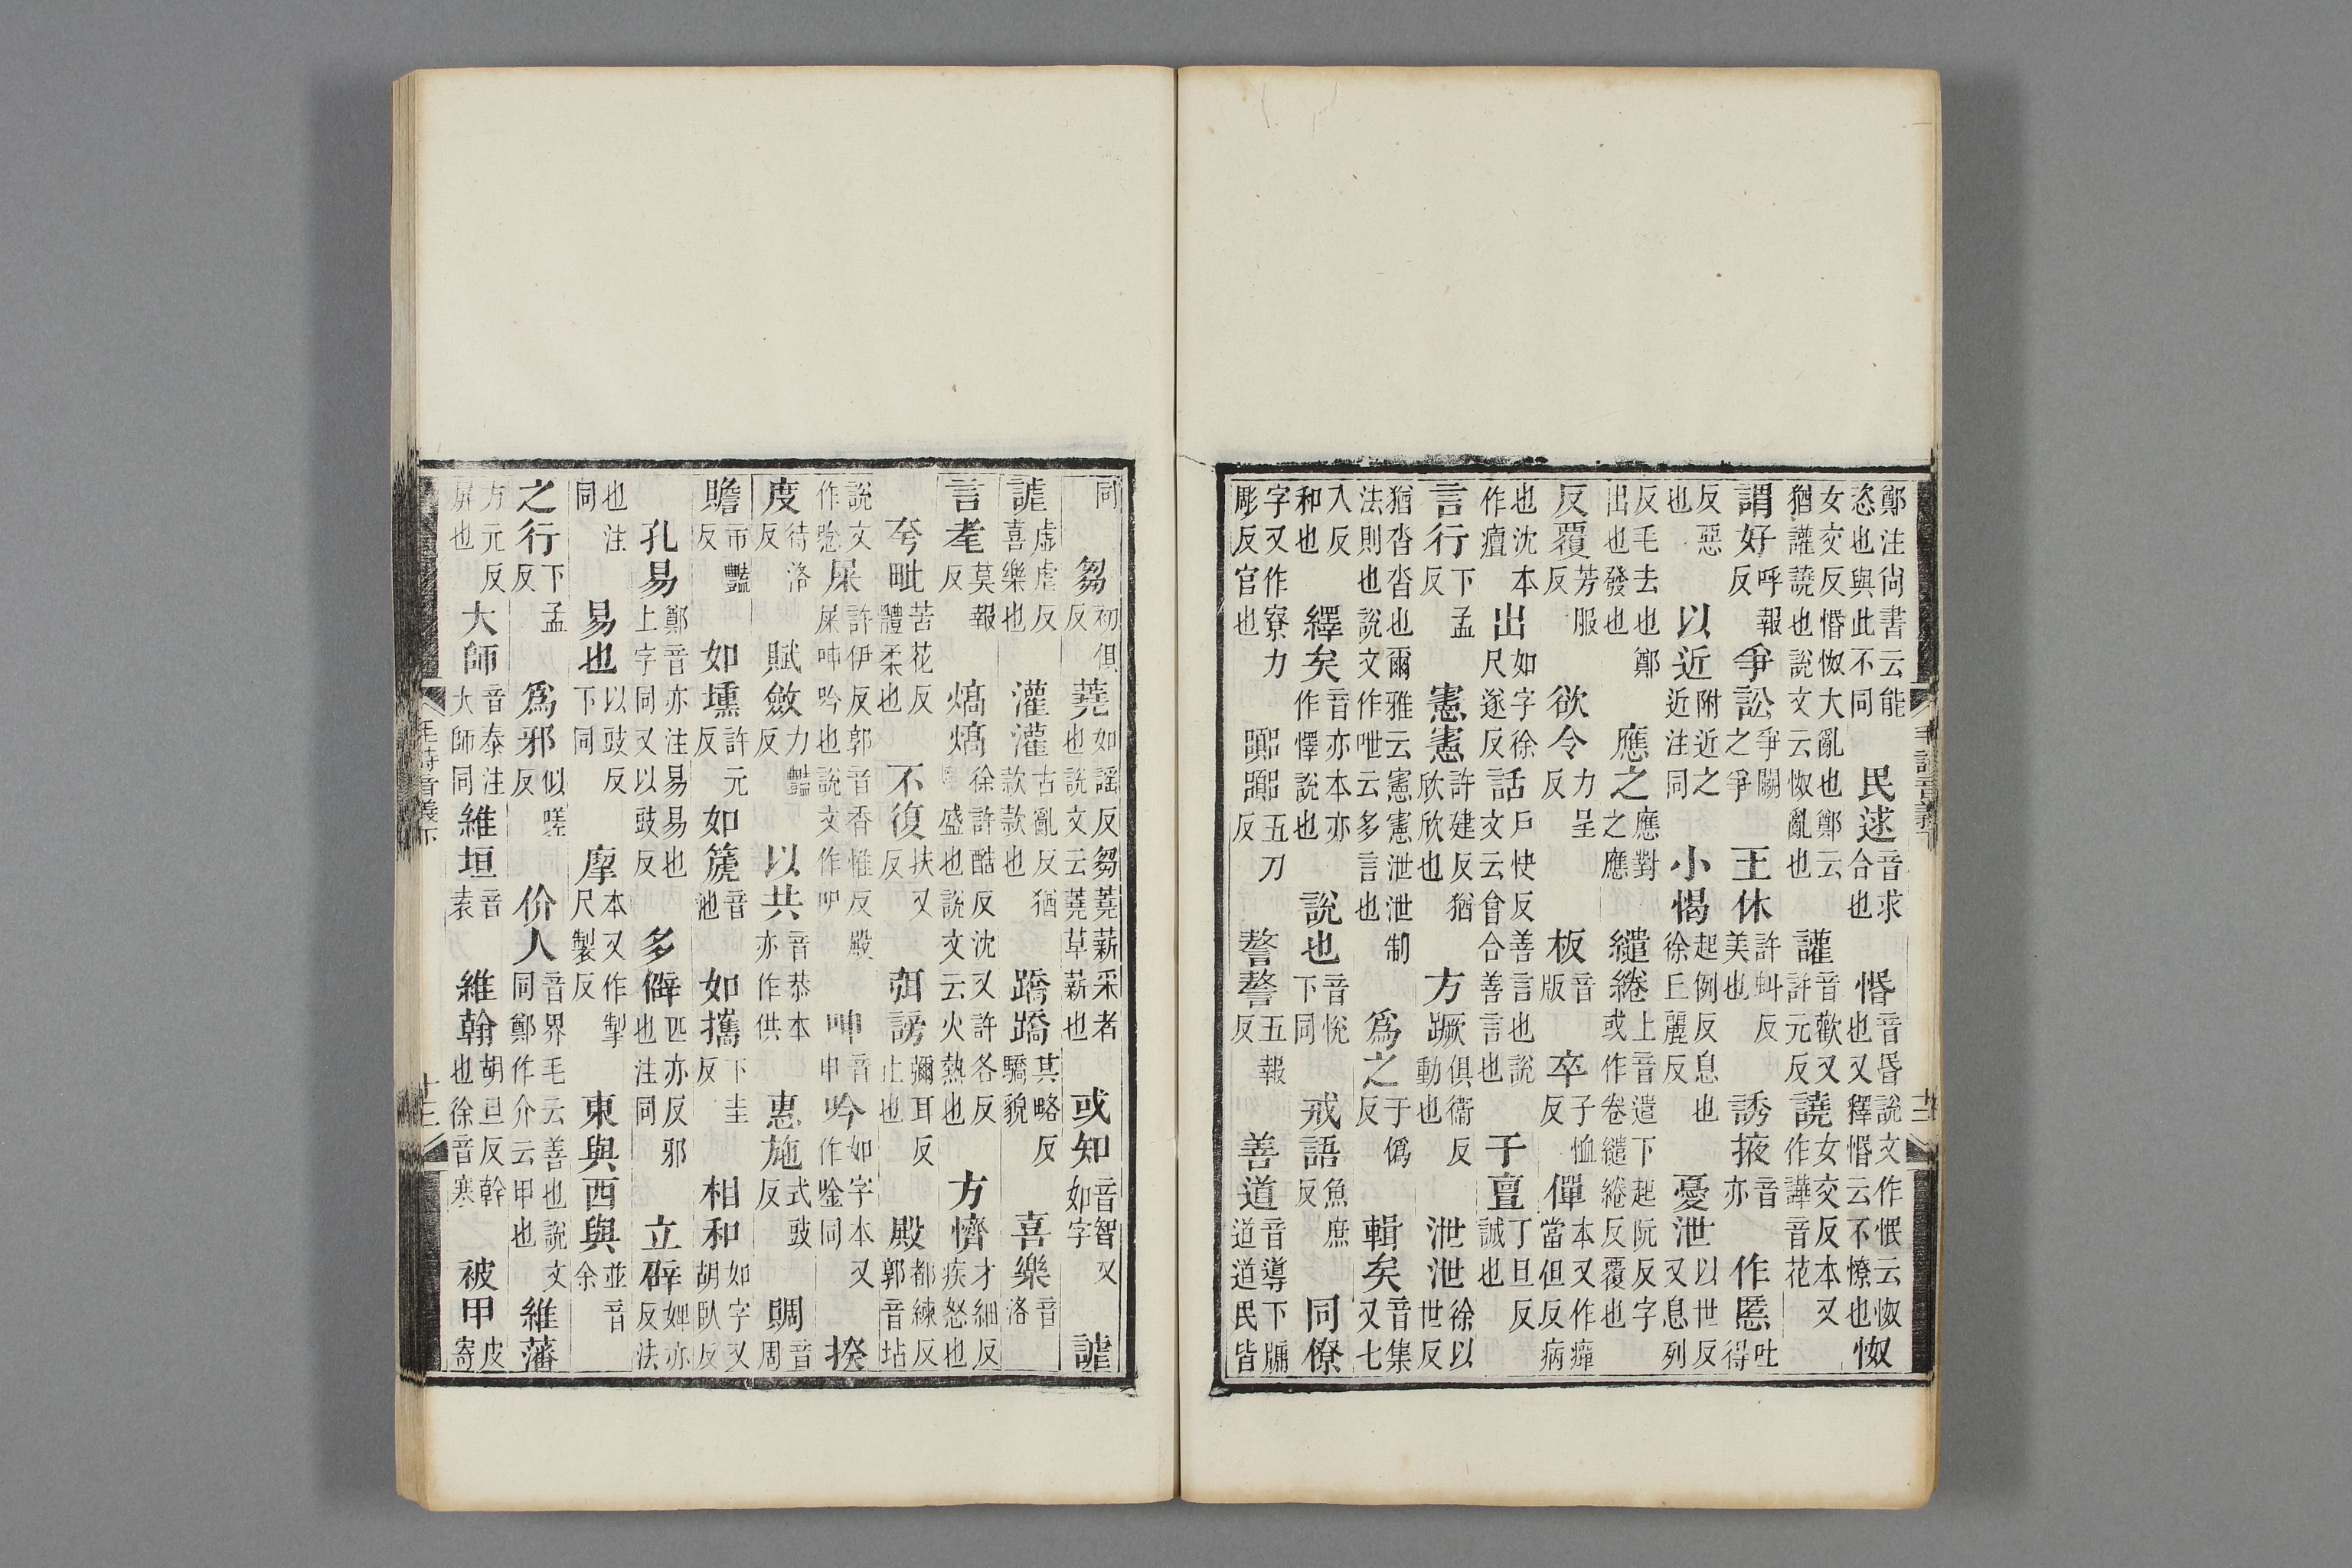 毛詩音義下
鄭注尙書云能恣也與此不同 民逑音求合也 惽音昏說文作怋云怓也又釋惽云不憭也 怓
女交反惽怓大亂也鄭云猶讙譊也說文云怓亂也 讙音歡又許元反 譊女交反本又作譁音花
謂好呼報反 爭訟爭鬭之爭 王休許虯反美也 誘掖音亦 作慝吐得
反惡也 以近附近之近注同 小愒起例反息也徐丘麗反 憂泄以世反又息列
反毛去也鄭出也發也 應之應對之應 繾綣上音遣下起阮反字或作卷繾綣反覆也
反覆芳服反 欲令力呈反 板音版 卒子恤反 僤本又作癉當但反病
也沈本作癉 出如字徐尺遂反 話戶快反善言也說文云會合善言也 子亶丁旦反誠也
言行下孟反 憲憲許建反猶欣欣也 方蹶俱衞反動也 泄泄徐以世反
猶沓沓也爾雅云憲憲泄泄制法則也說文作呭云多言也 爲之于僞反 輯矣音集又七
入反和也 繹矣音亦本亦作懌說也 說也音悅下同 戒語魚庶反 同僚
字又作寮力彫反官也 嚻嚻五刀反 謷謷五報反 善道音導下牖道道民皆
同 芻初俱反 蕘如謠反芻蕘薪采者也說文云蕘草薪也 或知音智又如字 謔
謔虛虐反喜樂也 灌灌古亂反猶款款也 蹻蹻其略反驕貌 喜樂音洛
言耄莫報反 熇熇徐許酷反沈又許各反熾盛也說文云火熱也 方懠才細反疾怒也
夸毗苦花反體柔也 不復扶又反 弭謗彌耳反止也 殿都練反郭音坫
說文作唸 屎許伊反郭音香惟反殿屎呻吟也說文作吚 呻音申 吟如字本又作唫同 揆
度待洛反 賦斂力豔反 以共音恭本亦作供 惠施式豉反 賙音周
贍市豔反 如壎許元反 如篪音池 如攜下圭反 相和如字又胡臥反
孔易鄭音亦注易易也上字同又以豉反 多僻匹亦反邪也注同 立辟婢亦反法
也注同 易也以豉反下同 摩本又作掣尺製反 東與西與並音余
之行下孟反 爲邪似嗟反 价人音界毛云善也說文同鄭作介云甲也 維藩
方元反屏也 大師音泰注大師同 維垣音袁 維翰胡旦反幹也徐音寒 被甲皮寄
毛詩音義下